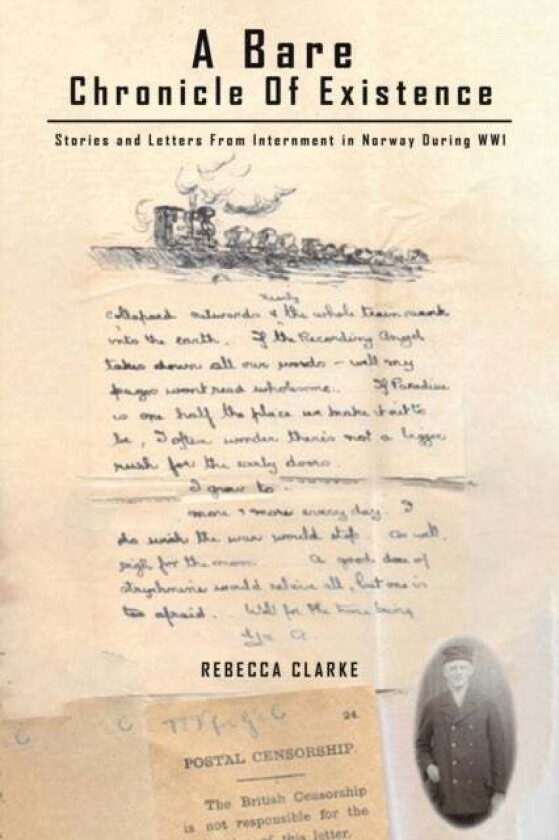 A Bare
Chronicle Of Existence
Stories and Letters From Internment in Norway During WW1
nearly
collapsed outwards & the whole train sank
into the earth. If the Recording Angel
takes down all our words – well my
pages wont read wholesome. If Paradise
is one half the place we make it out to
be, I often wonder there's not a bigger
rush for the early doors.
I grow to
more & more every day. I
do wish the war would stop. As well
sigh for the moon. A good dose of
strychnine would relieve all, but one is
too afraid. Well for the time being
REBECCA CLARKE
24.
POSTAL CENSORSHIP.
The British Censorship
is not responsible for the
of this letter.